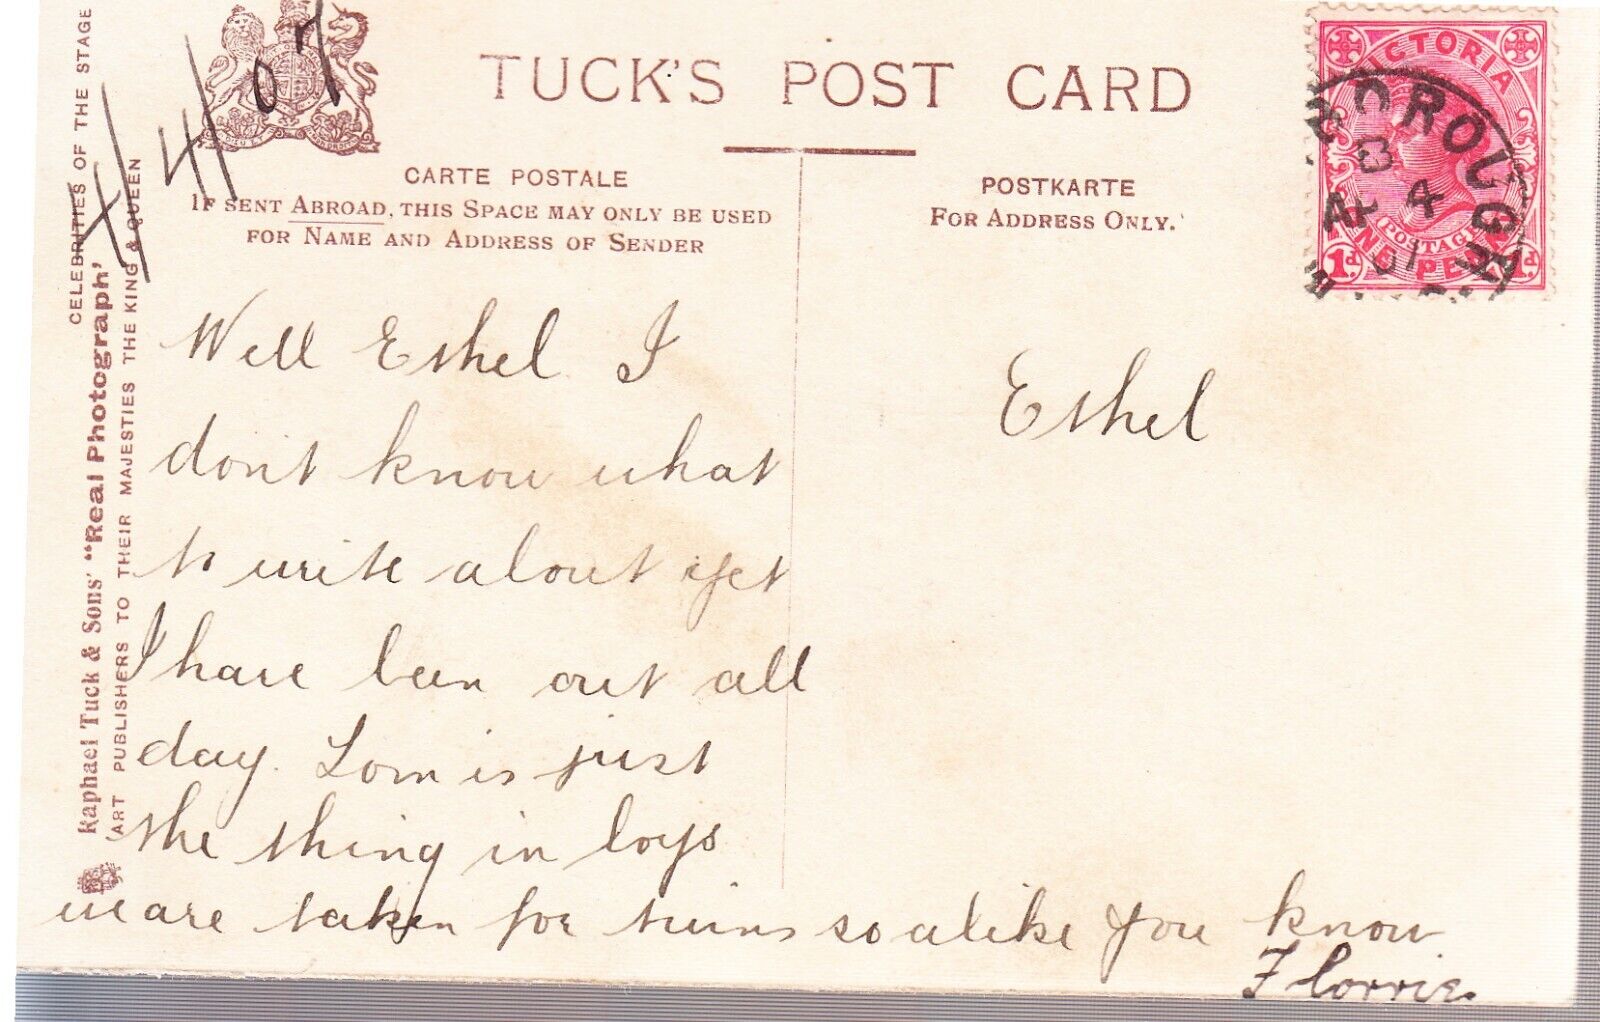 TUCK'S POST CARD
CARTE POSTALE
IF SENT ABROAD, THIS SPACE MAY ONLY BE USED
FOR NAME AND ADDRESS OF SENDER
POSTKARTE
FOR ADDRESS ONLY.
CELEBRITIES OF THE STAGE
Raphael Tuck & Sons' "Real Photograph'
ART PUBLISHERS TO THEIR MAJESTIES THE KING & QUEEN
4/07
VICTORIA
POSTAGE
ONE PENNY
1d. 1d.
Well Ethel I
don't know what
to write about yet
I have been out all
day. Lorn is just
the thing in boys
we are taken for twins so alike you know
Florrie.
Ethel